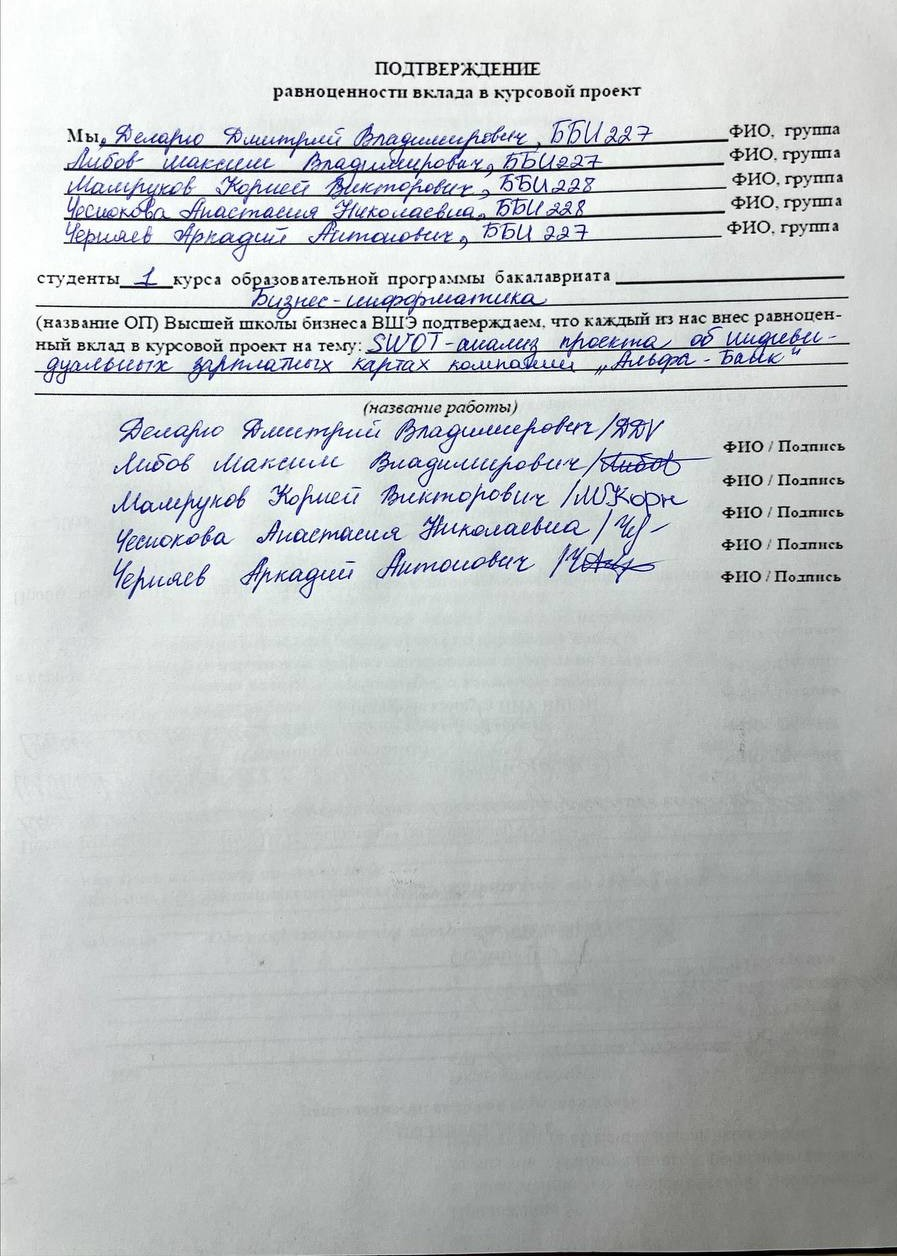 ПОДТВЕРЖДЕНИЕ
равноценности вклада в курсовой проект
Мы, Деларю Дмитрий Владимирович, ББИ227 ФИО, группа
Либов Максим Владимирович, ББИ227 ФИО, группа
Мамруков Корней Викторович, ББИ228 ФИО, группа
Чеснокова Анастасия Николаевна, ББИ228 ФИО, группа
Черняев Аркадий Антонович, ББИ 227 ФИО, группа
студенты 1 курса образовательной программы бакалавриата
Бизнес-информатика
(название ОП) Высшей школы бизнеса ВШЭ подтверждаем, что каждый из нас внес равноцен-
ный вклад в курсовой проект на тему: SWOT-анализ проекта об индиви-
дуальных зарплатных картах компании „Альфа-Банк"
(название работы)
Деларю Дмитрий Владимирович/DDV ФИО / Подпись
Либов Максим Владимирович/Либов ФИО / Подпись
Мамруков Корней Викторович / ФИО / Подпись
Чеснокова Анастасия Николаевна / ФИО / Подпись
Черняев Аркадий Антонович / ФИО / Подпись